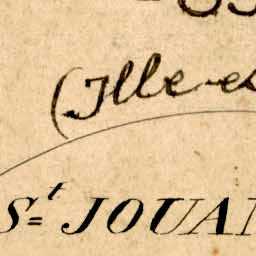 (Ille-e
St JOUAN